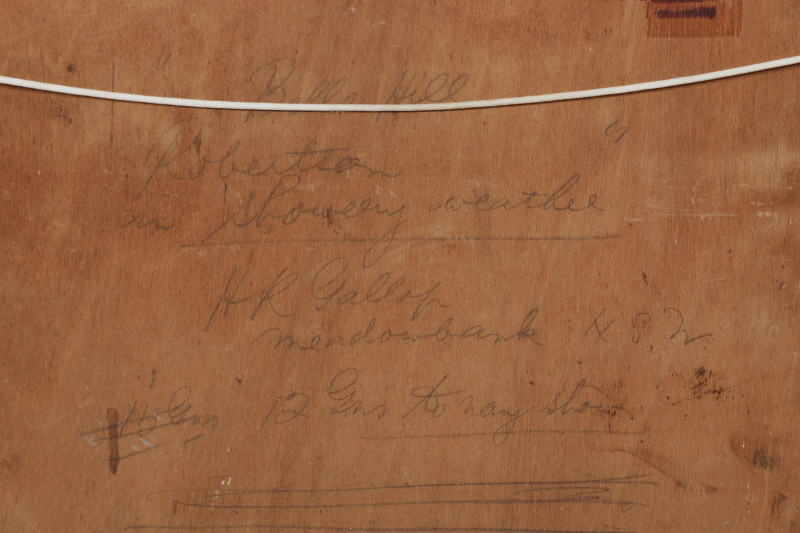 " Bells Hill
Robertson "
in Showery weather
HR Gallop
Meadowbank N S. W
Gns 12 Gns to